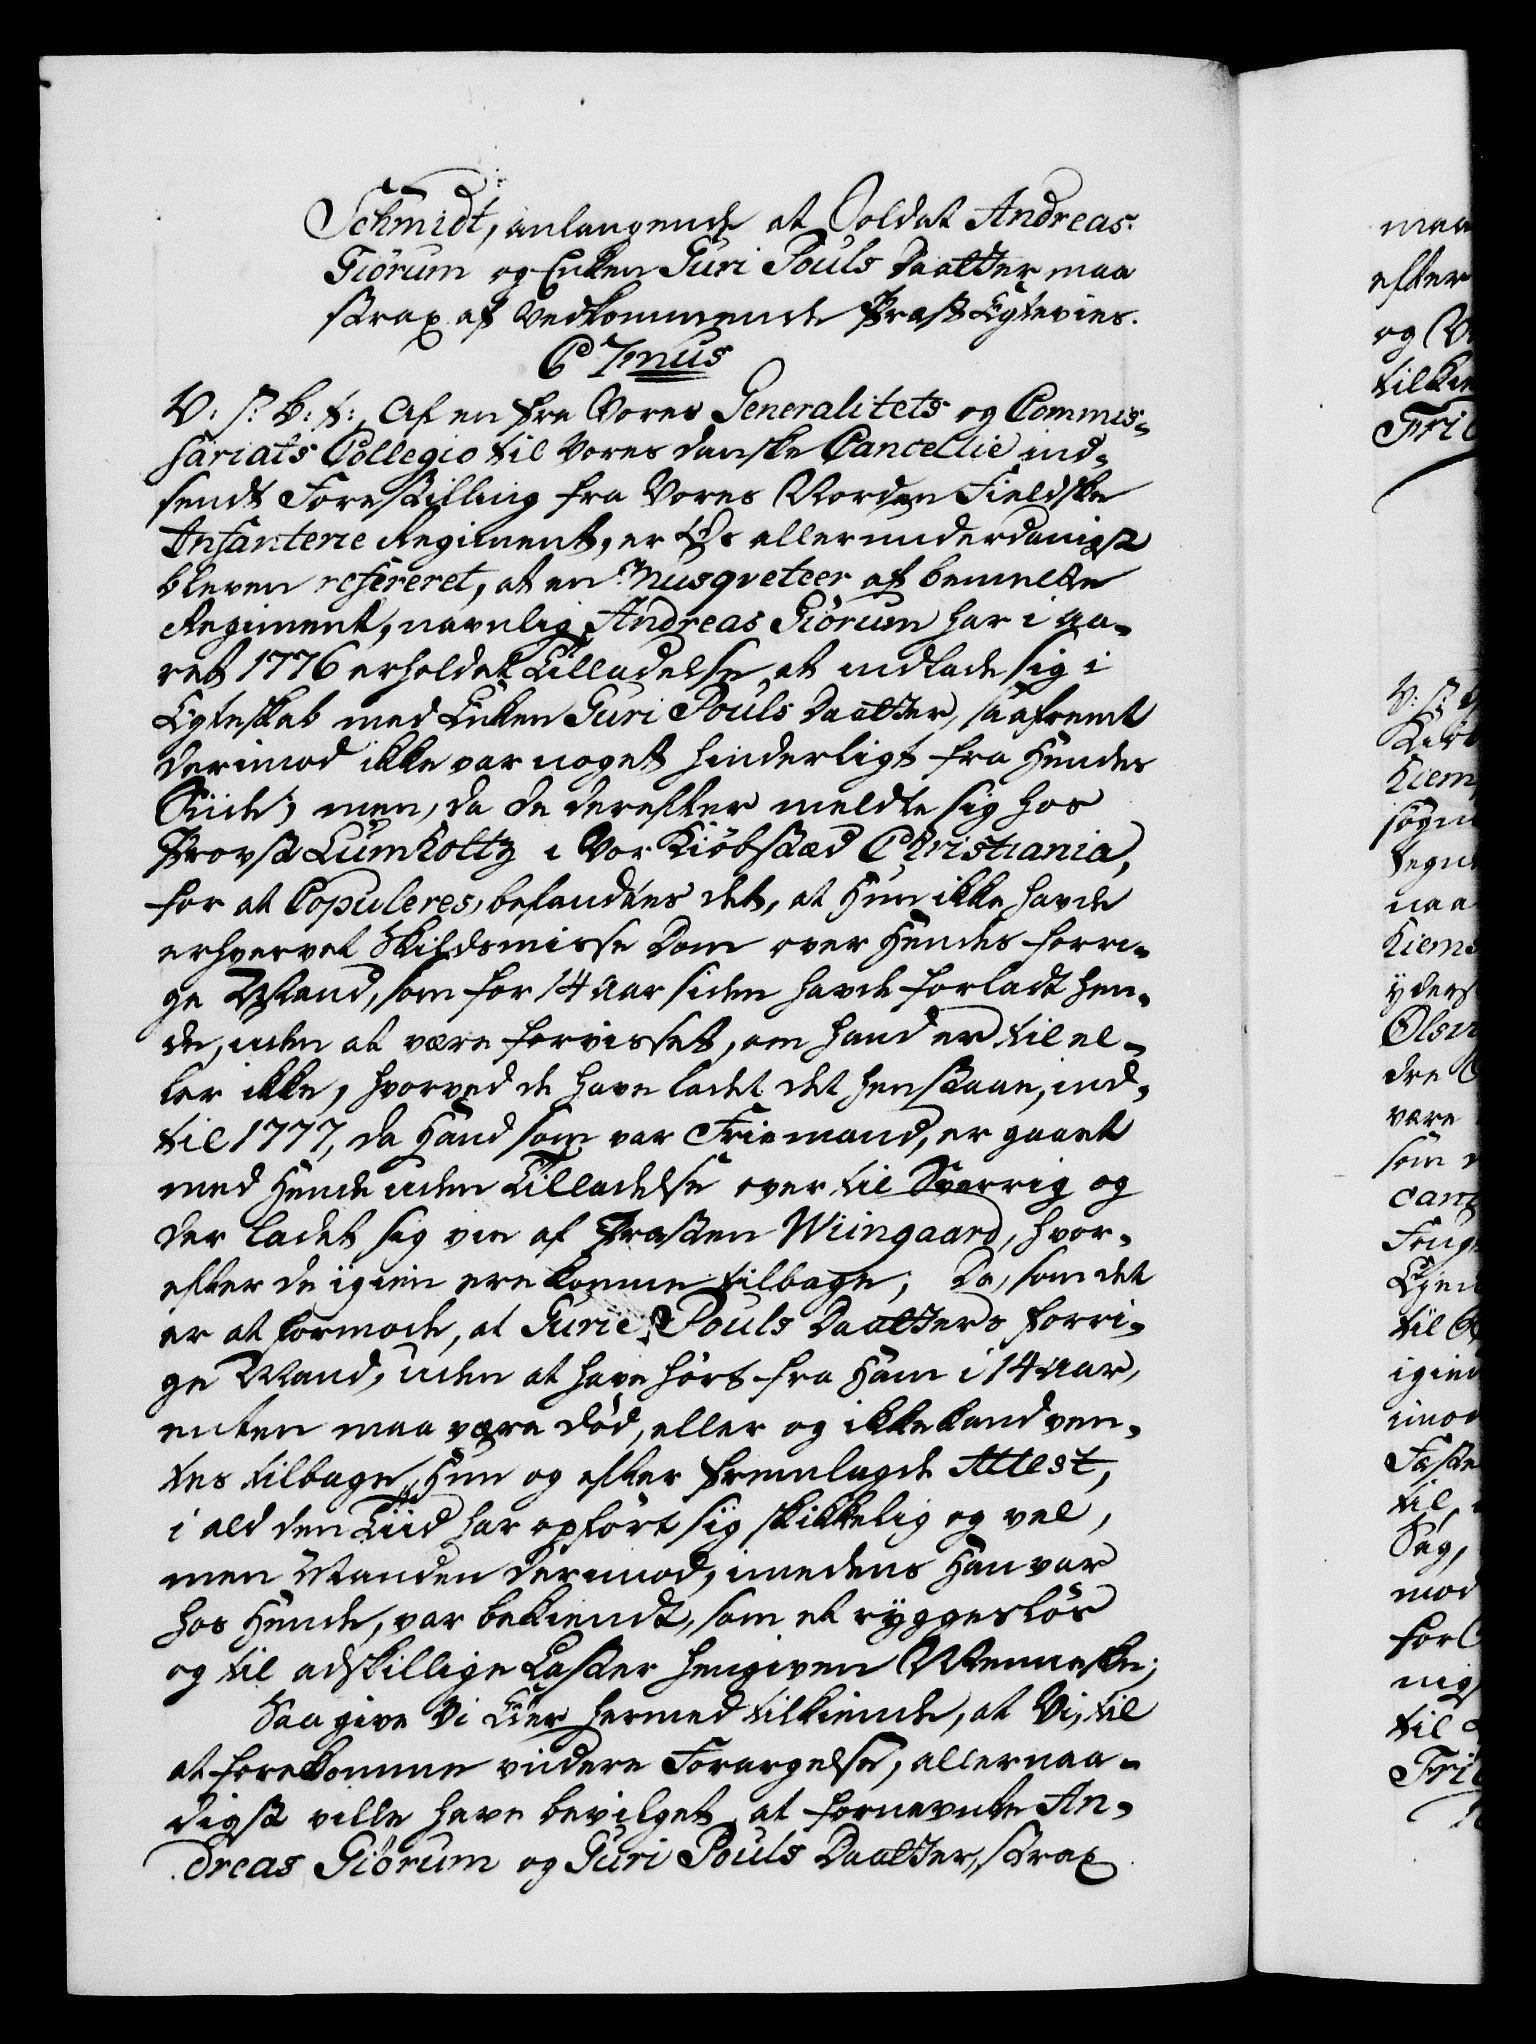 Schmidt, anlangende at Soldat Andreas
Giörum og Enken Guri Pouls Daatter maa
strax af Vedkommende Præst Egtevies.
C 7mus
V: S: B: t:, Af en fra Vores Generalitets og Commis-
sariats Collegio til Vores danske Cancellie ind-
sendt Forestilling fra Vores Norden Fieldske
Infanterie Regiment, er Os allerunderdanigst
bleven refereret, at en Musqveteer af bemelte
Regiment, navnlig Andreas Giörum har i Aa-
ret 1776 erholdet Tilladelse at indlade sig i
Egteskab med Enken Guri Pouls Daatter, saafremt
derimod ikke var noget hinderligt fra Hendes
Siide; men, da de derefter meldte sig hos
Provst Lumholtz i Vor Kiöbstæd Christiania,
for at Copuleres, befandtes det, at Hun ikke havde
erhvervet Skildsmisse Dom over Hendes forri-
ge Mand, som for 14 Aar siden havde forladt Hen-
de, uden at være forvisset, om Hand er til el-
ler ikke, hvorved de have ladet det henstaae, ind-
til 1777, da Hand som var Friemand, er gaaet
med Hende uden Tilladelse over til Sverrig og
der ladet sig vie af Præsten Wiingaard, hvor-
efter de igien ere komne tilbage; Da, som det
er at formode, at Gurie Pouls Daatters forri-
ge Mand, uden at have hört fra Ham i 14 Aar,
enten maa være död, eller og ikke kand ven-
tes tilbage, Hun og efter fremlagde Attest,
i ald den Tiid har opfört sig skikkelig og vel,
men Manden derimod, imedens Han var
hos Hende, var bekiendt, som et ryggeslös
og til adskillige Laster hengiven Menneske;
Saa give Vi Eder hermed tilkiende, at Vi, til
at forekomme viidere Forargelse, allernaa-
digst ville have bevilget, at fornevnte An-
dreas Giörum og Guri Pouls Daatter, strax
maa
efter
og
tilkie
Fri
V: S:
Kiem
sogn
tegn
naa
Kiems
yders
Olsv
dre
være
som
Foug
Ejen
til
igien
imod
Fæste
til
Sag,
mod
forl
nig
til
Fri